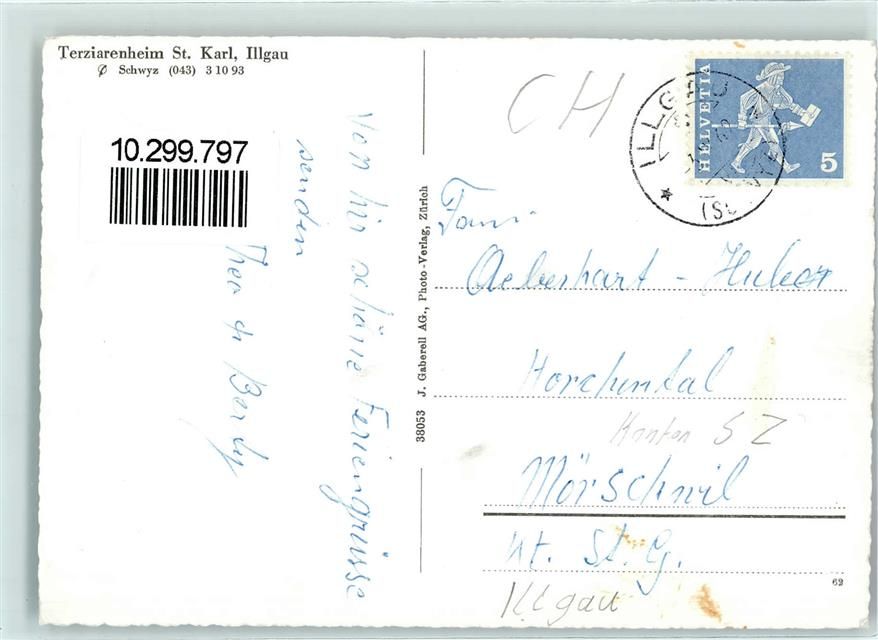 Terziarenheim St. Karl, Illgau
✆ Schwyz (043) 3 10 93
10.299.797
Von hir schöne Feriengrüsse
senden
Theo & Berdy
38053 J. Gaberell AG., Photo-Verlag, Zürich
CH
HELVETIA
5
ILLGAU
(SCHWYZ)
Fam.
Aeberhart - Huber
Horchental
Kanton SZ
Mörschwil
Kt. St. G.
Illgau
62